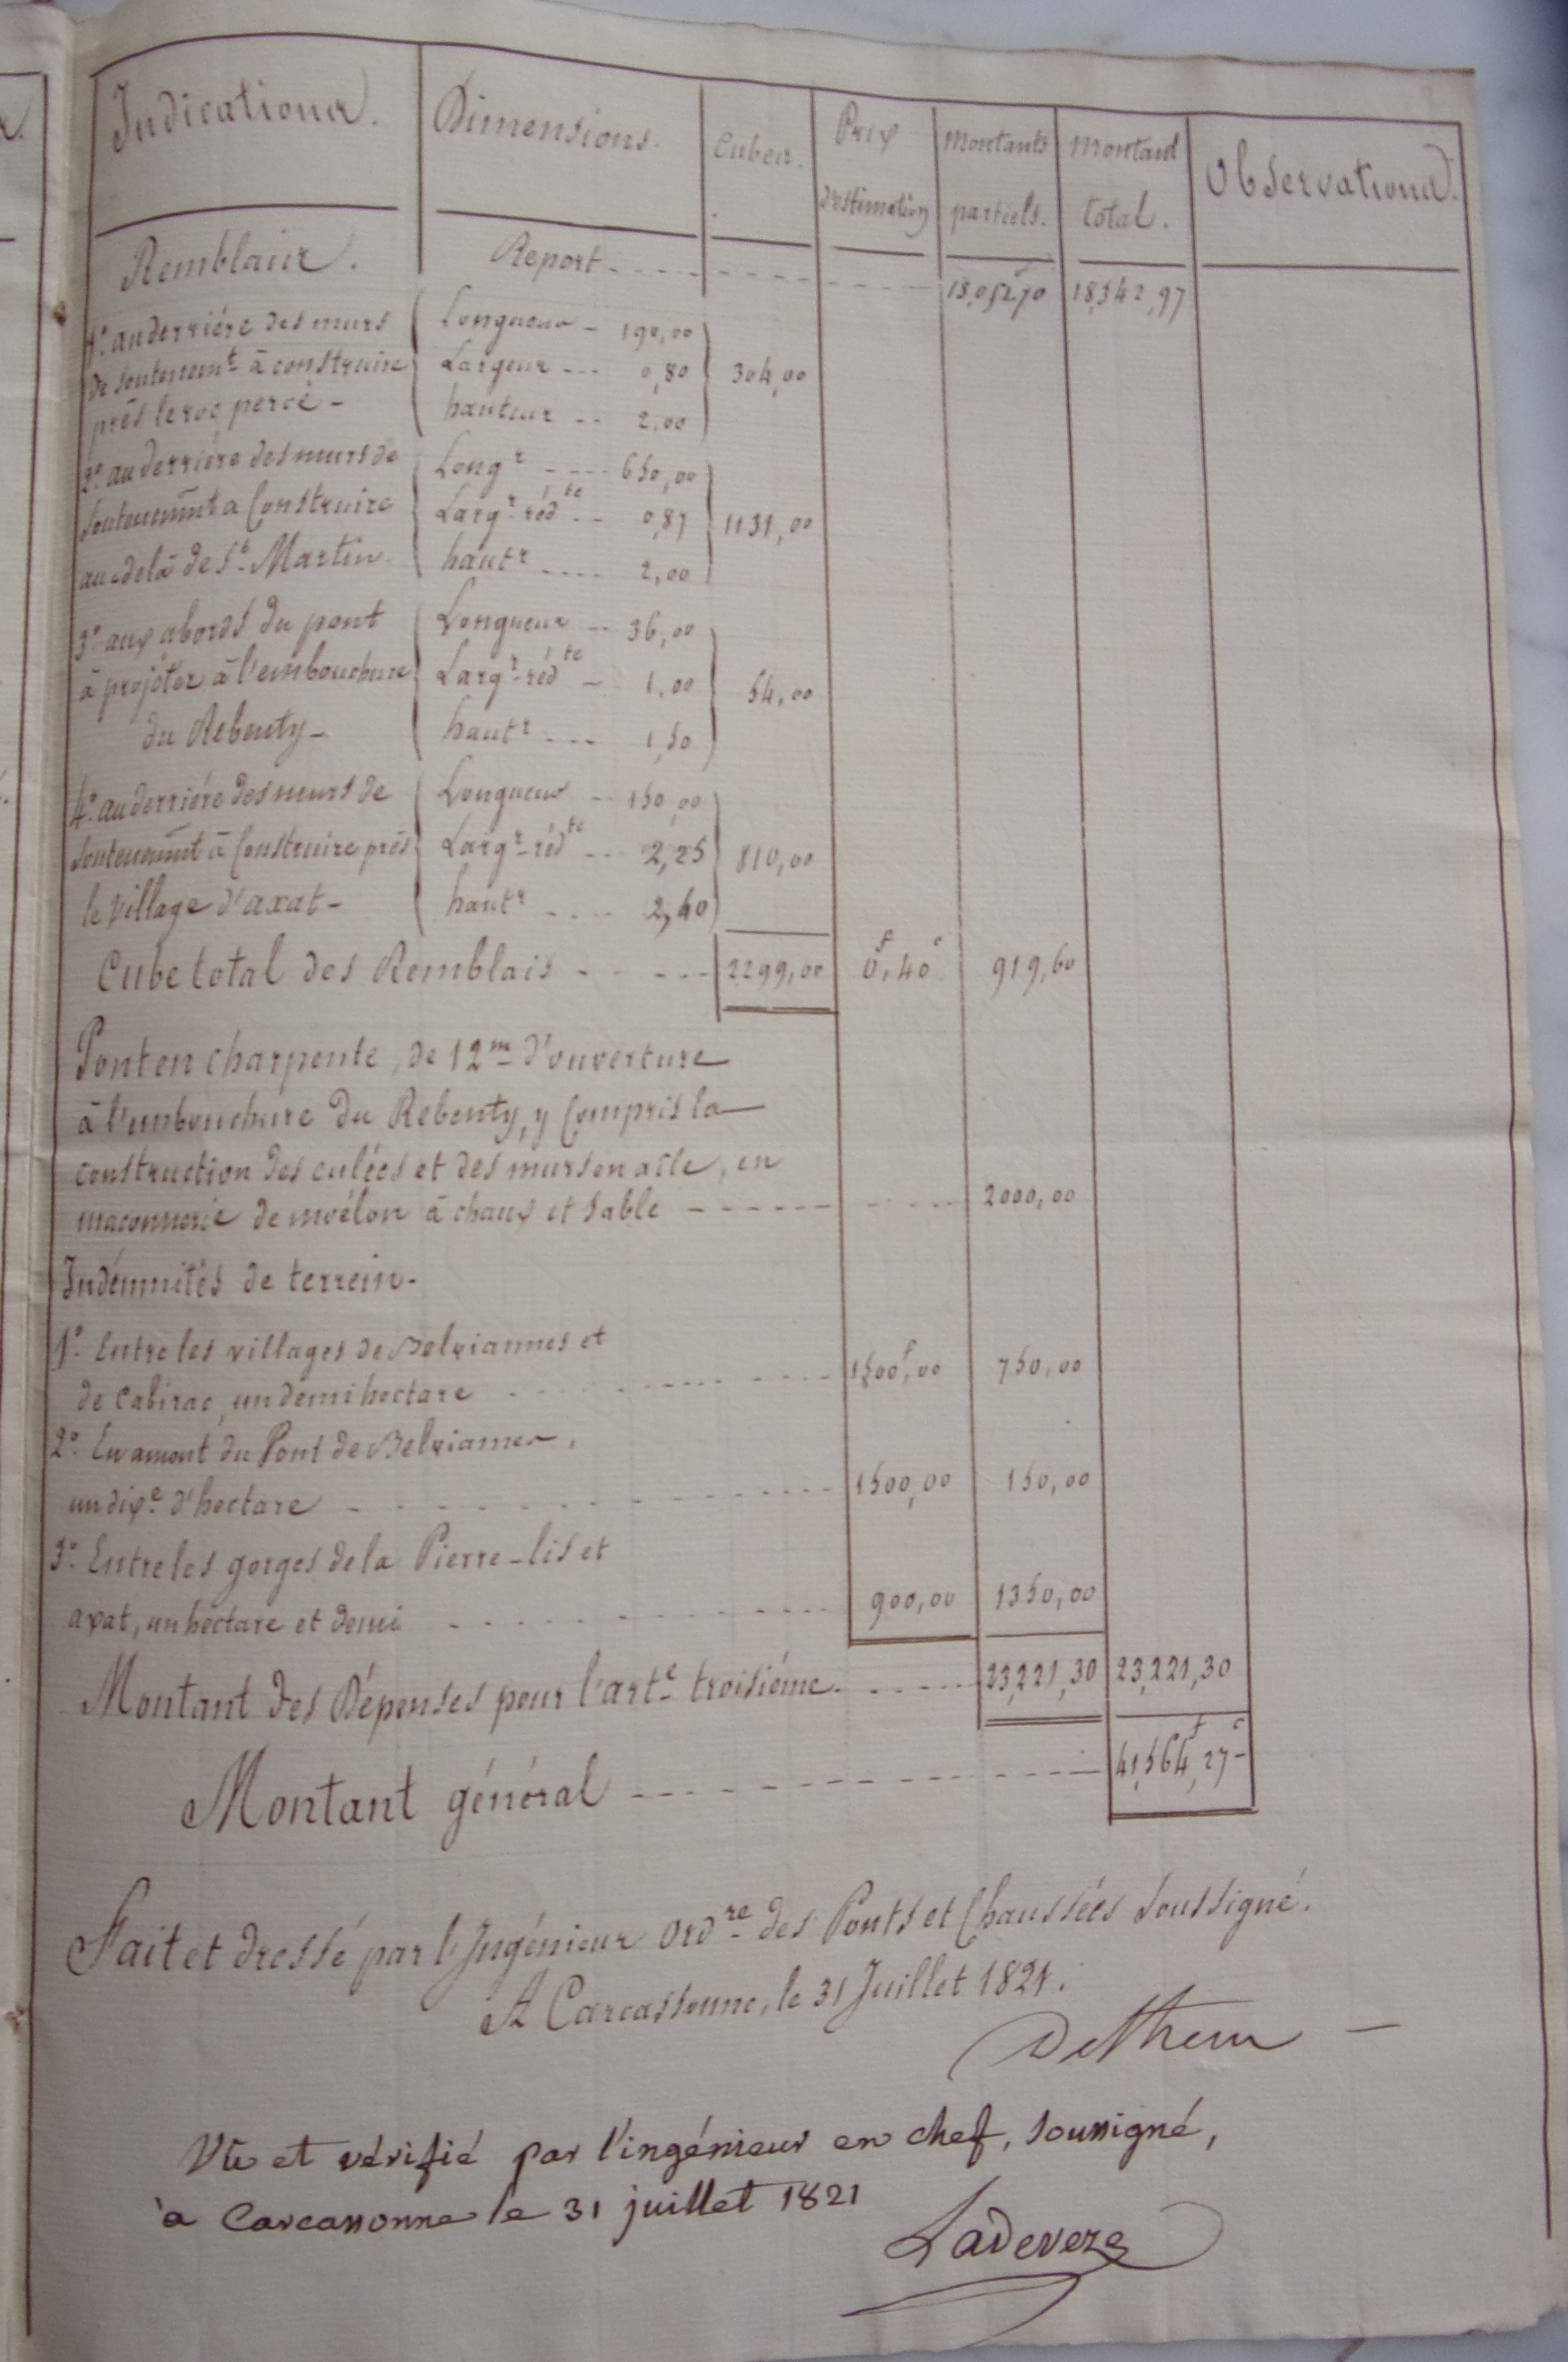 Indications. Dimensions. Cubes. Prix d'estimation Montants partiels. Montant total. Observations.
Remblais. Report 18,052,70 18,342,97
1º. au derriére des murs Longueur 190,00
de soutenemt. à construire Largeur 0,80 304,00
près le roc percé - hauteur 2,00
2º. au derriére des murs de Longr 650,00
soutenemnt a Construire Largr. rédte 0,87 1131,00
au delà de St. Martin. hautr 2,00
3º. aux abords du pont Longueur 36,00
à projéter à l'embouchure Largr. rédte 1,00 54,00
du Rebenty - hautr 1,50
4º. au derriére des murs de Longueur 150,00
soutenemnt à Construire près Largr. rédte 2,25 810,00
le village d'axat - hautr 2,40
Cube total des Remblais 2299,00 0f,40c 919,60
Pont en charpente, de 12m d'ouverture
à l'embouchure du Rebenty, y Compris la
construction des culées et des murs en aile, en
maconnerie de moélon à chaux et sable 2000,00
Indémnités de terrein.
1º. Entre les villages de Belviannes et
de Cabirac, un demi hectare 1500f,00 750,00
2º. En amont du Pont de Belvianes,
un dixe. d'hectare 1500,00 150,00
3º. Entre les gorges de la Pierre-lis et
axat, un hectare et demi 900,00 1350,00
Montant des Dépenses pour l'arte. troisiéme 23,221,30 23,221,30
Montant général 41,564f,27c
Fait et dressé par l'Ingénieur Ordre. des Ponts et Chaussées soussigné.
A Carcassonne, le 31 Juillet 1821.
Vu et vérifié par l'ingénieur en chef, soussigné,
à Carcassonne le 31 juillet 1821
Ladeveze